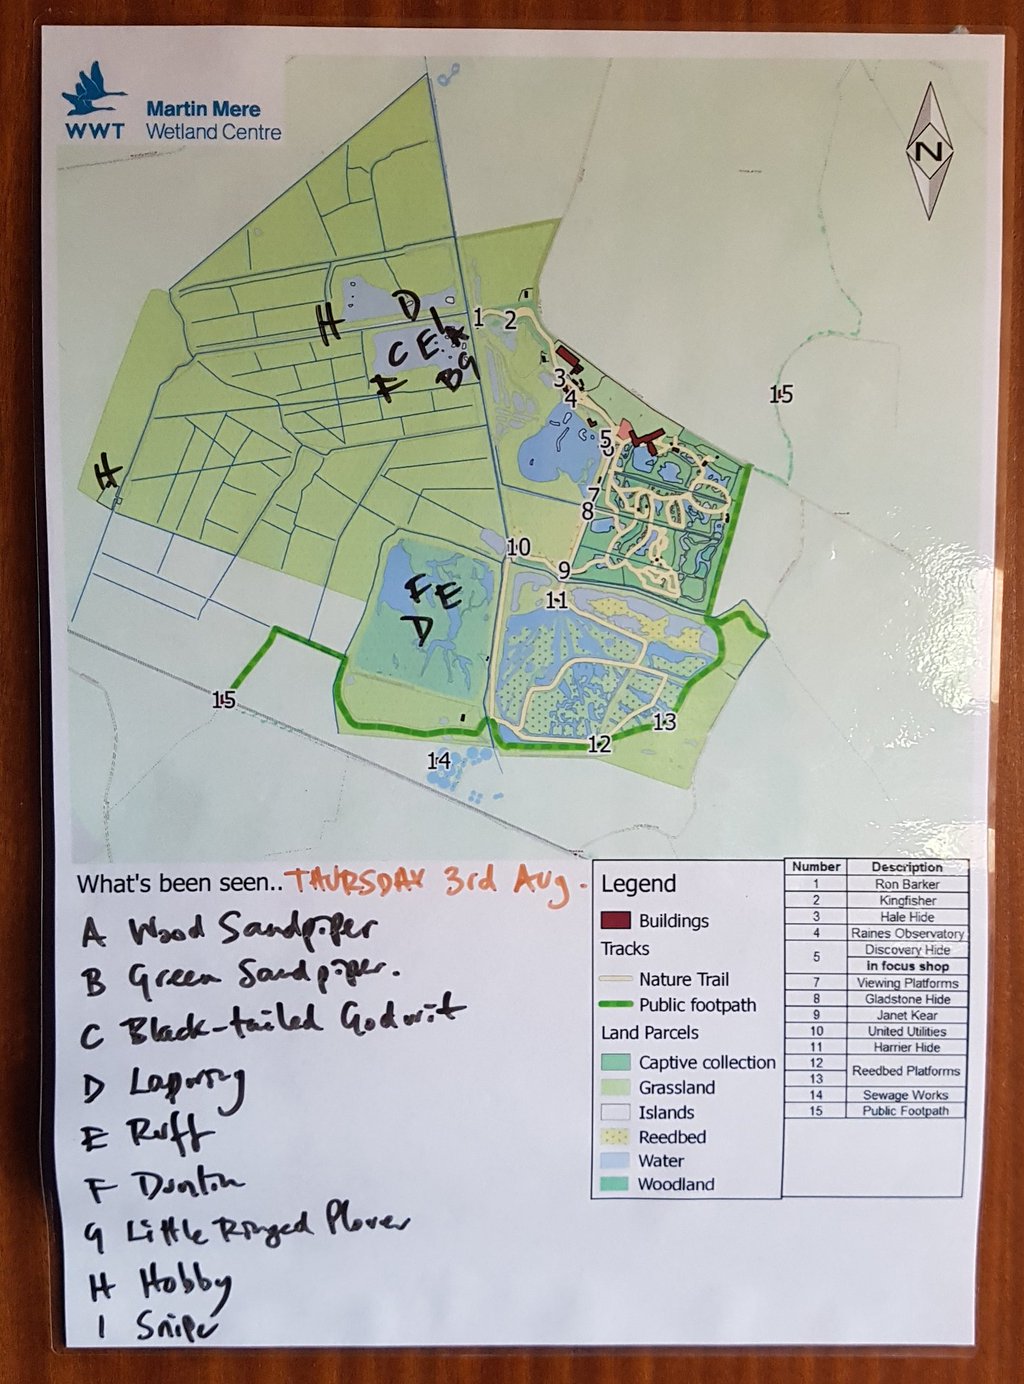 WWT
Martin Mere
Wetland Centre
N
H
D
I
1
2
C
E
A
F
B
G
3
4
15
5
6
H
7
8
10
9
F
E
11
D
15
13
12
14
What's been seen.. THURSDAY 3rd Aug.
A Wood Sandpiper
B Green Sandpiper.
C Black-tailed Godwit
D Lapwing
E Ruff
F Dunlin
G Little Ringed Plover
H Hobby
I Snipe
Legend
Buildings
Tracks
Nature Trail
Public footpath
Land Parcels
Captive collection
Grassland
Islands
Reedbed
Water
Woodland
Number Description
1 Ron Barker
2 Kingfisher
3 Hale Hide
4 Raines Observatory
5 Discovery Hide
in focus shop
7 Viewing Platforms
8 Gladstone Hide
9 Janet Kear
10 United Utilities
11 Harrier Hide
12 Reedbed Platforms
13
14 Sewage Works
15 Public Footpath